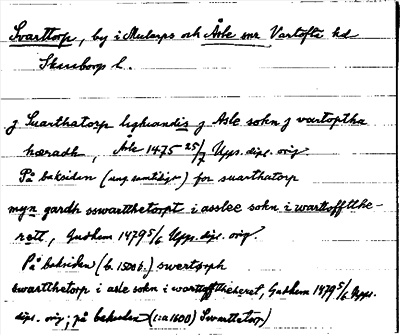 Svarttorp, by i Mularps och Åsle snr Vartofta hd
Skarborgs l.
j Suarthatorp lighiandis j Asle sokn j vartoptha
hæradh, Åsle 1475 25/7 Upps. dipl. orig.
På baksidan (ung. samtidigt) for suarthatorp
myn gardh sswartthetorpt i asslee sokn i wartoffthe-
rett, Gudhem 1479 5/6 Upps. dipl. orig.
På baksidan (b. 1500 t.) swertorph
swartthetorp i asle sokn i wartoffthehæret, Gudhem 1479 5/6 Upps.
dipl. orig; på baksidan (c:a 1600) Svarttetorp)